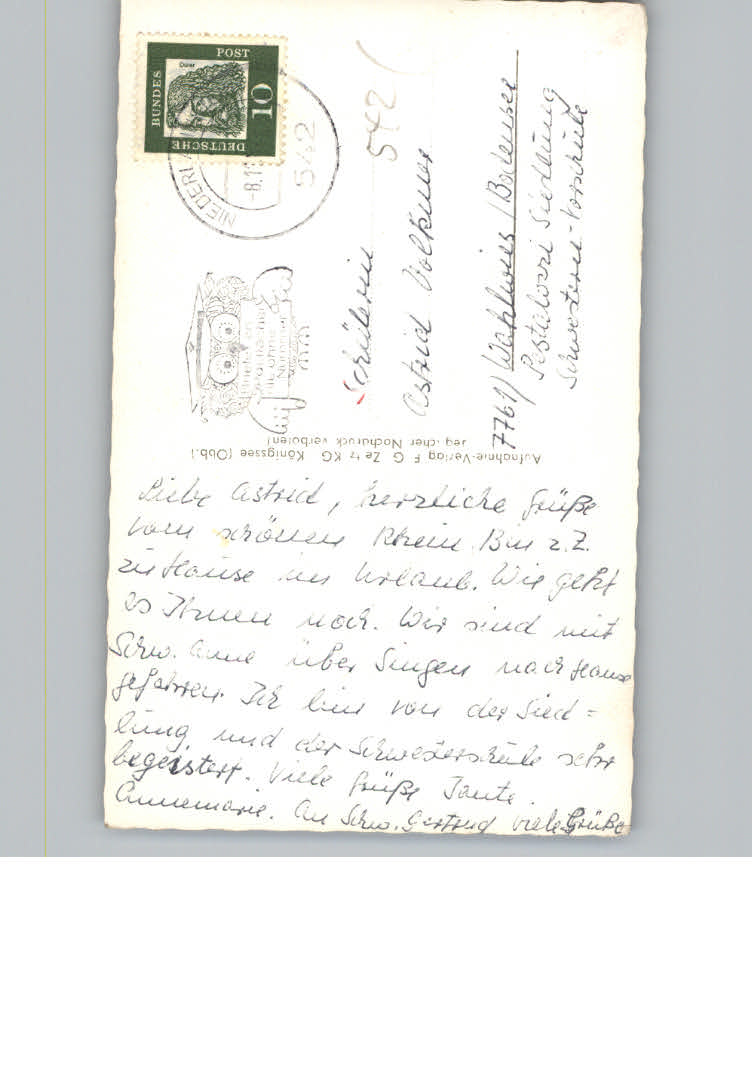 Liebe Astrid, herzliche Grüße
vom schönen Rhein. Bin z.Z.
zu Hause im Urlaub. Wie geht
es Ihnen noch. Wir sind mit
Schw. Anne über Singen nach Hause
gefahren. Ich bin von der Sied=
lung und der Schwesterschule sehr
begeistert. Viele Grüße Tante.
Annemarie. An Schw. Gertrud viele Grüße
Schülerin
Astrid Volkmer
7761) Wahlwies / Bodensee
Pestalozzi Siedlung
Schwestern-Vorschule
542
Aufnahme-Verlag F. G. Zeitz KG Königssee (Obb.)
Jeglicher Nachdruck verboten!
DEUTSCHE
BUNDES
POST
10
Dürer
-8.11
542